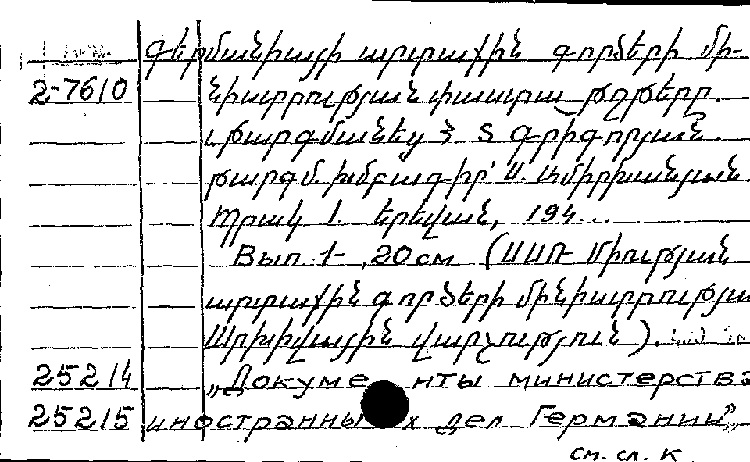 Գերմանիայի արտաքին գործերի մի-
2-7610 նիստրության փաստա թղթերը.
Թարգմանել է Տ Գրիգորյան.
թարգմ. խմբագիր՝ Ս. Ամիրխանյան.
Պրակ 1. Երևան, 194...
Вып. 1- , 20см (ՍՍՌ Միության
արտաքին գործերի մինիստրության
Արխիվային վարչություն).
25214 „Документы министерства
25215 иностранных дел Германии",
см. сл. к.